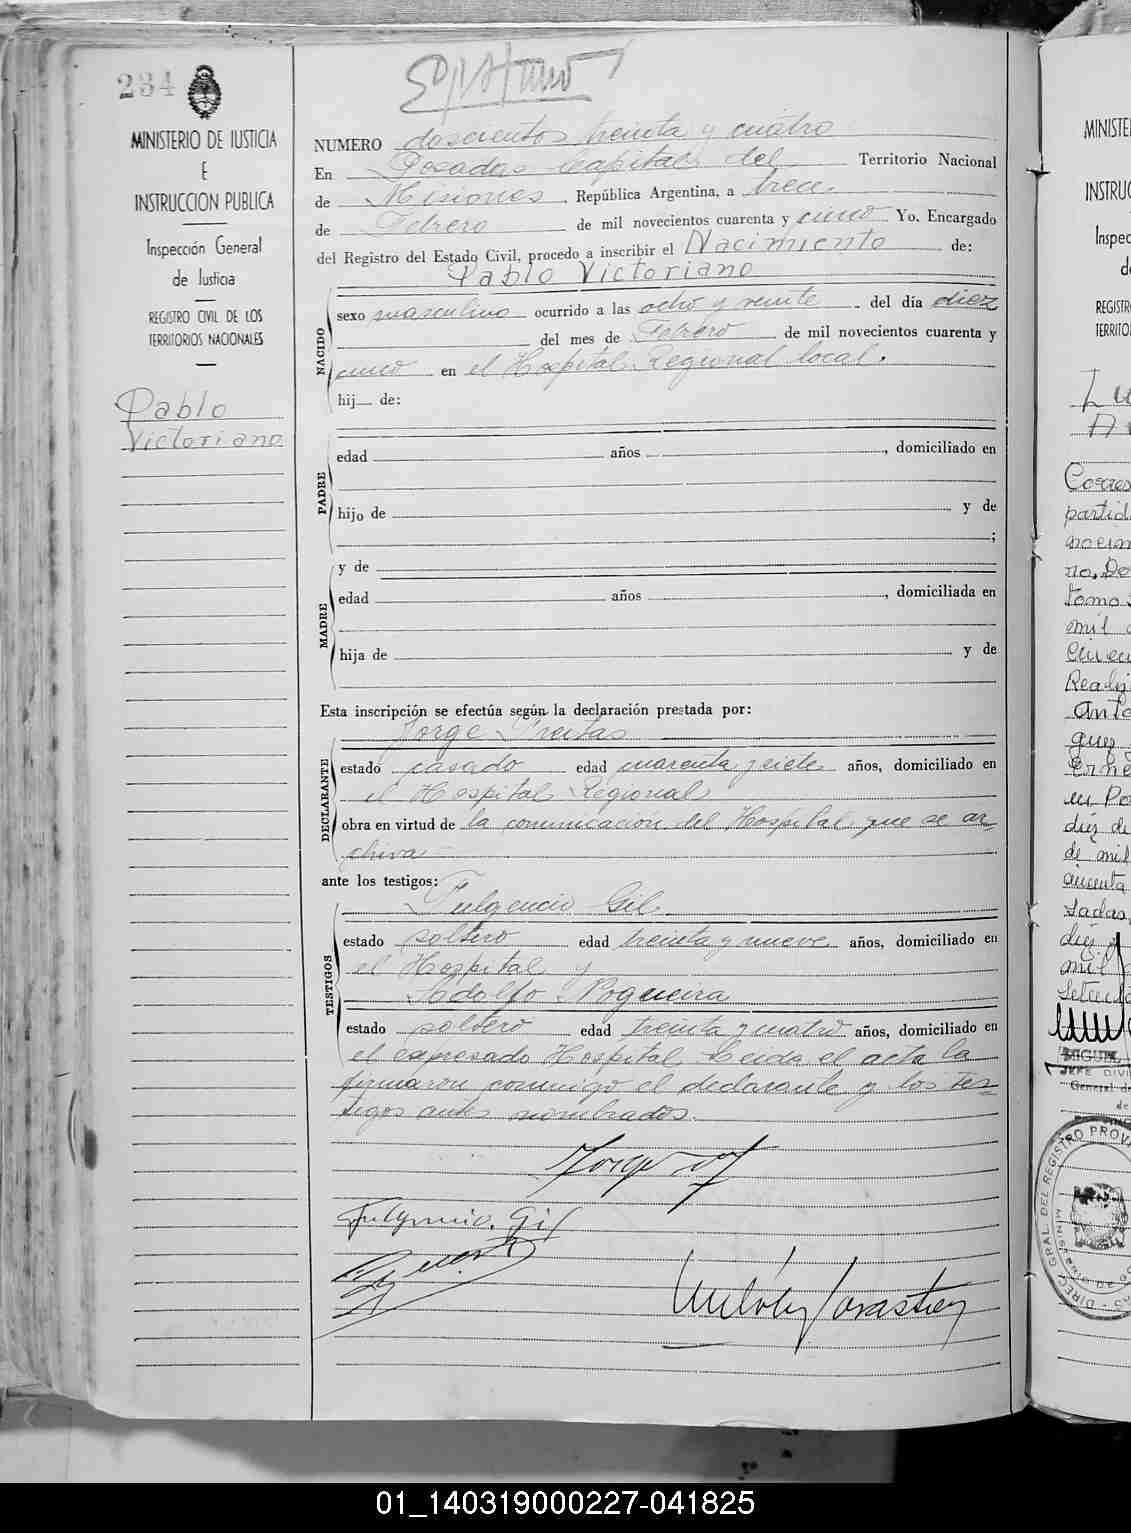 234
MINISTERIO DE JUSTICIA
E
INSTRUCCION PUBLICA
Inspección General
de Justicia
REGISTRO CIVIL DE LOS
TERRITORIOS NACIONALES
Pablo
Victoriano
NUMERO doscientos treinta y cuatro
En Posadas Capital del Territorio Nacional
de Misiones, República Argentina, a trece
de Febrero de mil novecientos cuarenta y cinco Yo. Encargado
del Registro del Estado Civil, procedo a inscribir el Nacimiento de:
Pablo Victoriano
NACIDO
sexo masculino ocurrido a las ocho y veinte del día diez
del mes de Febrero de mil novecientos cuarenta y
cinco en el Hospital Regional local.
hij de:
PADRE
edad años , domiciliado en
hijo de y de
;
y de
MADRE
edad años , domiciliada en
hija de y de
Esta inscripción se efectúa según la declaración prestada por:
Jorge Freitas
DECLARANTE
estado casado edad cuarenta y siete años, domiciliado en
el Hospital Regional
obra en virtud de la comunicación del Hospital que se ar-
chiva
ante los testigos:
Fulgencio Gil
TESTIGOS
estado soltero edad treinta y nueve años, domiciliado en
el Hospital y
Adolfo Nogueira
estado soltero edad treinta y cuatro años, domiciliado en
el expresado Hospital Leida el acta la
firmaron conmigo el declarante y los tes-
tigos antes nombrados.
Jorge
Fulgencio Gil
MINISTE
INSTRUC
Inspec
de
REGISTR
TERRITO
Lu
partid
tomo
mil
Anto
guez
Erne
en Po
diez de
de mil
MIGUEL
JEFE DIVI
General de
de
DIREC. GRAL. DEL REGISTRO PROV
01_140319000227-041825